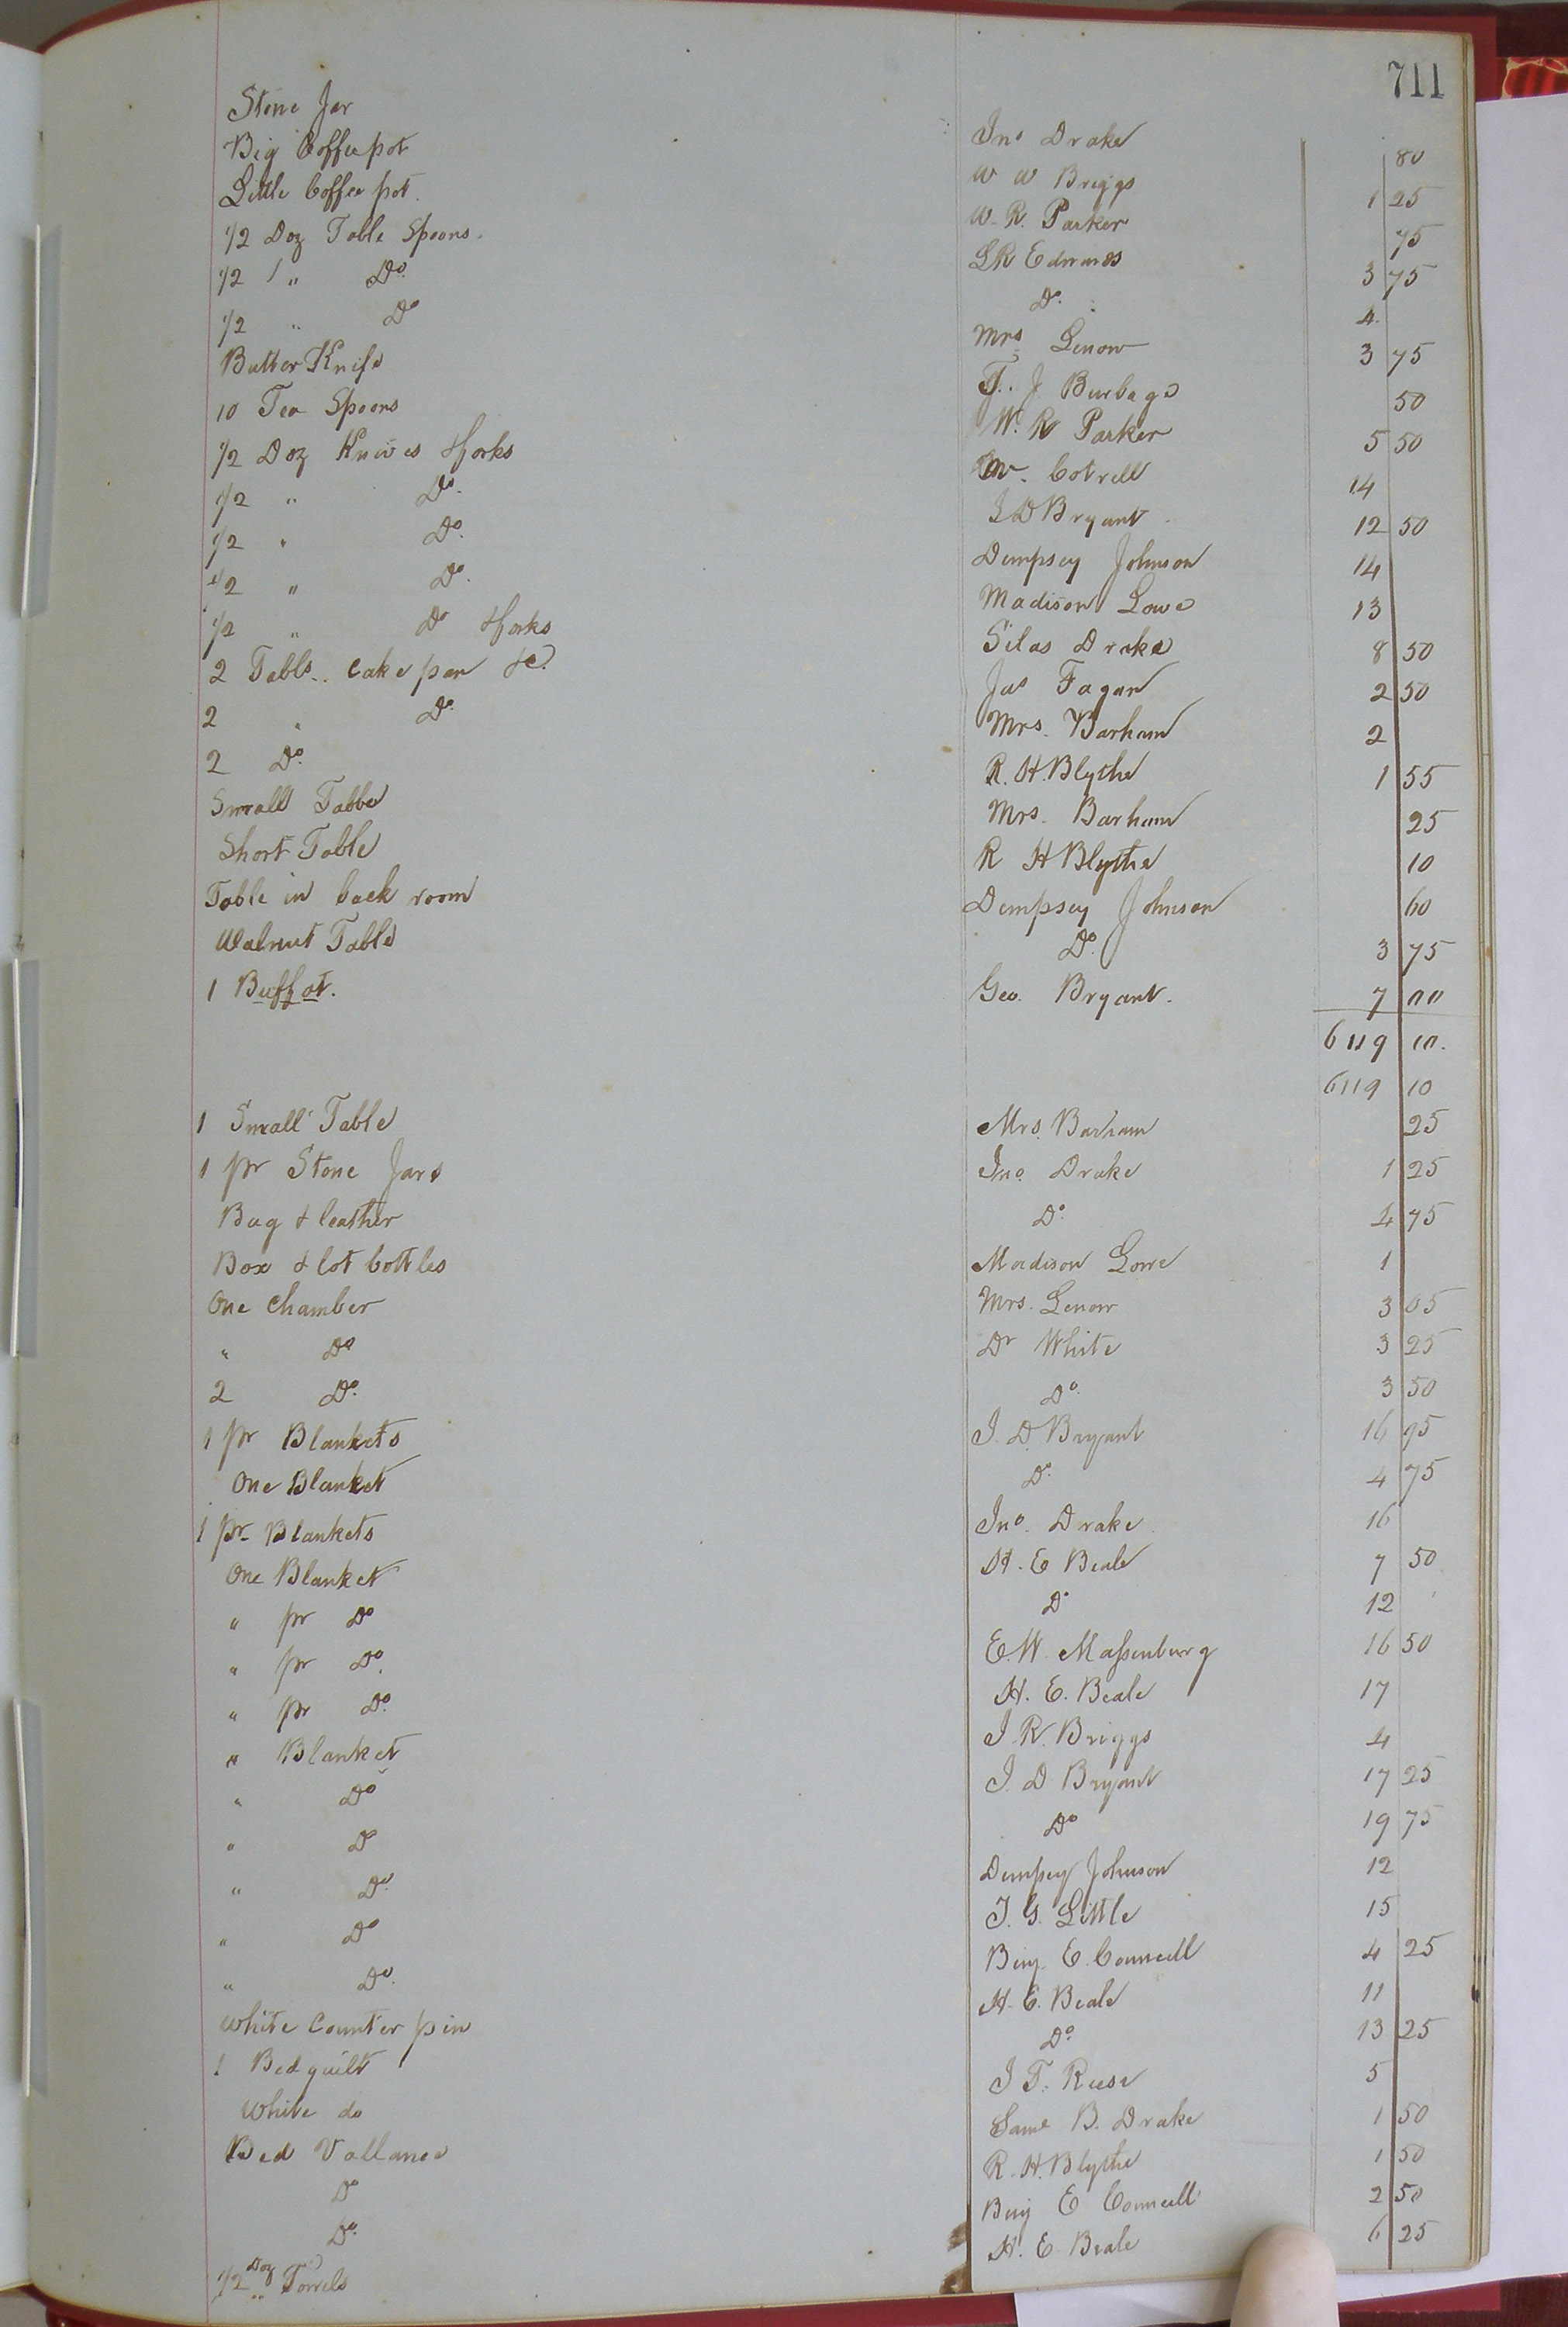 711
Stone Jar Jno Drake 80
Big Coffeepot W W Briggs 1 25
Little Coffee pot. W. R. Parker 75
1/2 Doz Table Spoons. L R Edwards 3 75
1/2 " Do. Do. 4
1/2 " Do Mrs Lenow 3 75
Butter Knife T. J Burbage 50
10 Tea Spoons W. R Parker 5 50
1/2 Doz Knives &forks Cotrell 14
1/2 " Do. J D Bryant. 12 50
1/2 " Do. Dempsey Johnson 14
1/2 " Do. Madison Lowe 13
1/2 " Do &forks Silas Drake 8 50
2 Table.. cake pan &c. Jas Fagan 2 50
2 " Do Mrs. Barham 2
2 Do. R. H. Blythe 1 55
Small Table Mrs. Barham 25
Short Table R H Blythe 10
Table in back room Dempsey Johnson 60
Walnut Table Do. 3 75
1 Buffat. Geo. Bryant. 7 00
6119 10.
6119 10
1 Small Table Mrs. Barham 25
1 pr Stone Jars Jno. Drake 1 25
Bag & leather Do. 4 75
Box & lot bottles Madison Lowe 1
One Chamber Mrs. Lenow 3 05
" Do Dr White 3 25
2 Do. Do. 3 50
1 pr Blankets J. D. Bryant 16 95
One Blanket Do. 4 75
1 pr Blankets Jno. Drake 16
One Blanket H. E Beale 7 50
" pr Do Do 12
" pr Do. E. W. Massenburg 16 50
" pr Do. H. E. Beale 17
" Blanket J. R. Briggs 4
" Do J. D Bryant 17 25
" Do Do 19 75
" Do Dempsey Johnson 12
" Do J. G. Little 15
" Do. Benj. E. Councill 4 25
White Counter pin H. E. Beale 11
1 Bed quilt Do. 13 25
White do J T. Reese 5
Bed Vallance Saml B. Drake 1 50
Do R. H. Blythe 1 50
Do. Benj E Councill 2 50
1/2 Doz " Towels H. E Beale 6 25